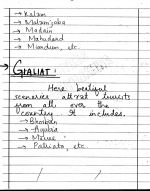 → Kalam
→ Malamjaba
→ Madain
→ Mahudand
→ Miandum, etc.
→ GALIAT:
Here beatiful
sceneries attract tourists
from all over the
country. It includes.
→ Bhorban
→ Ayubia
→ Murree
→ Patriata, etc